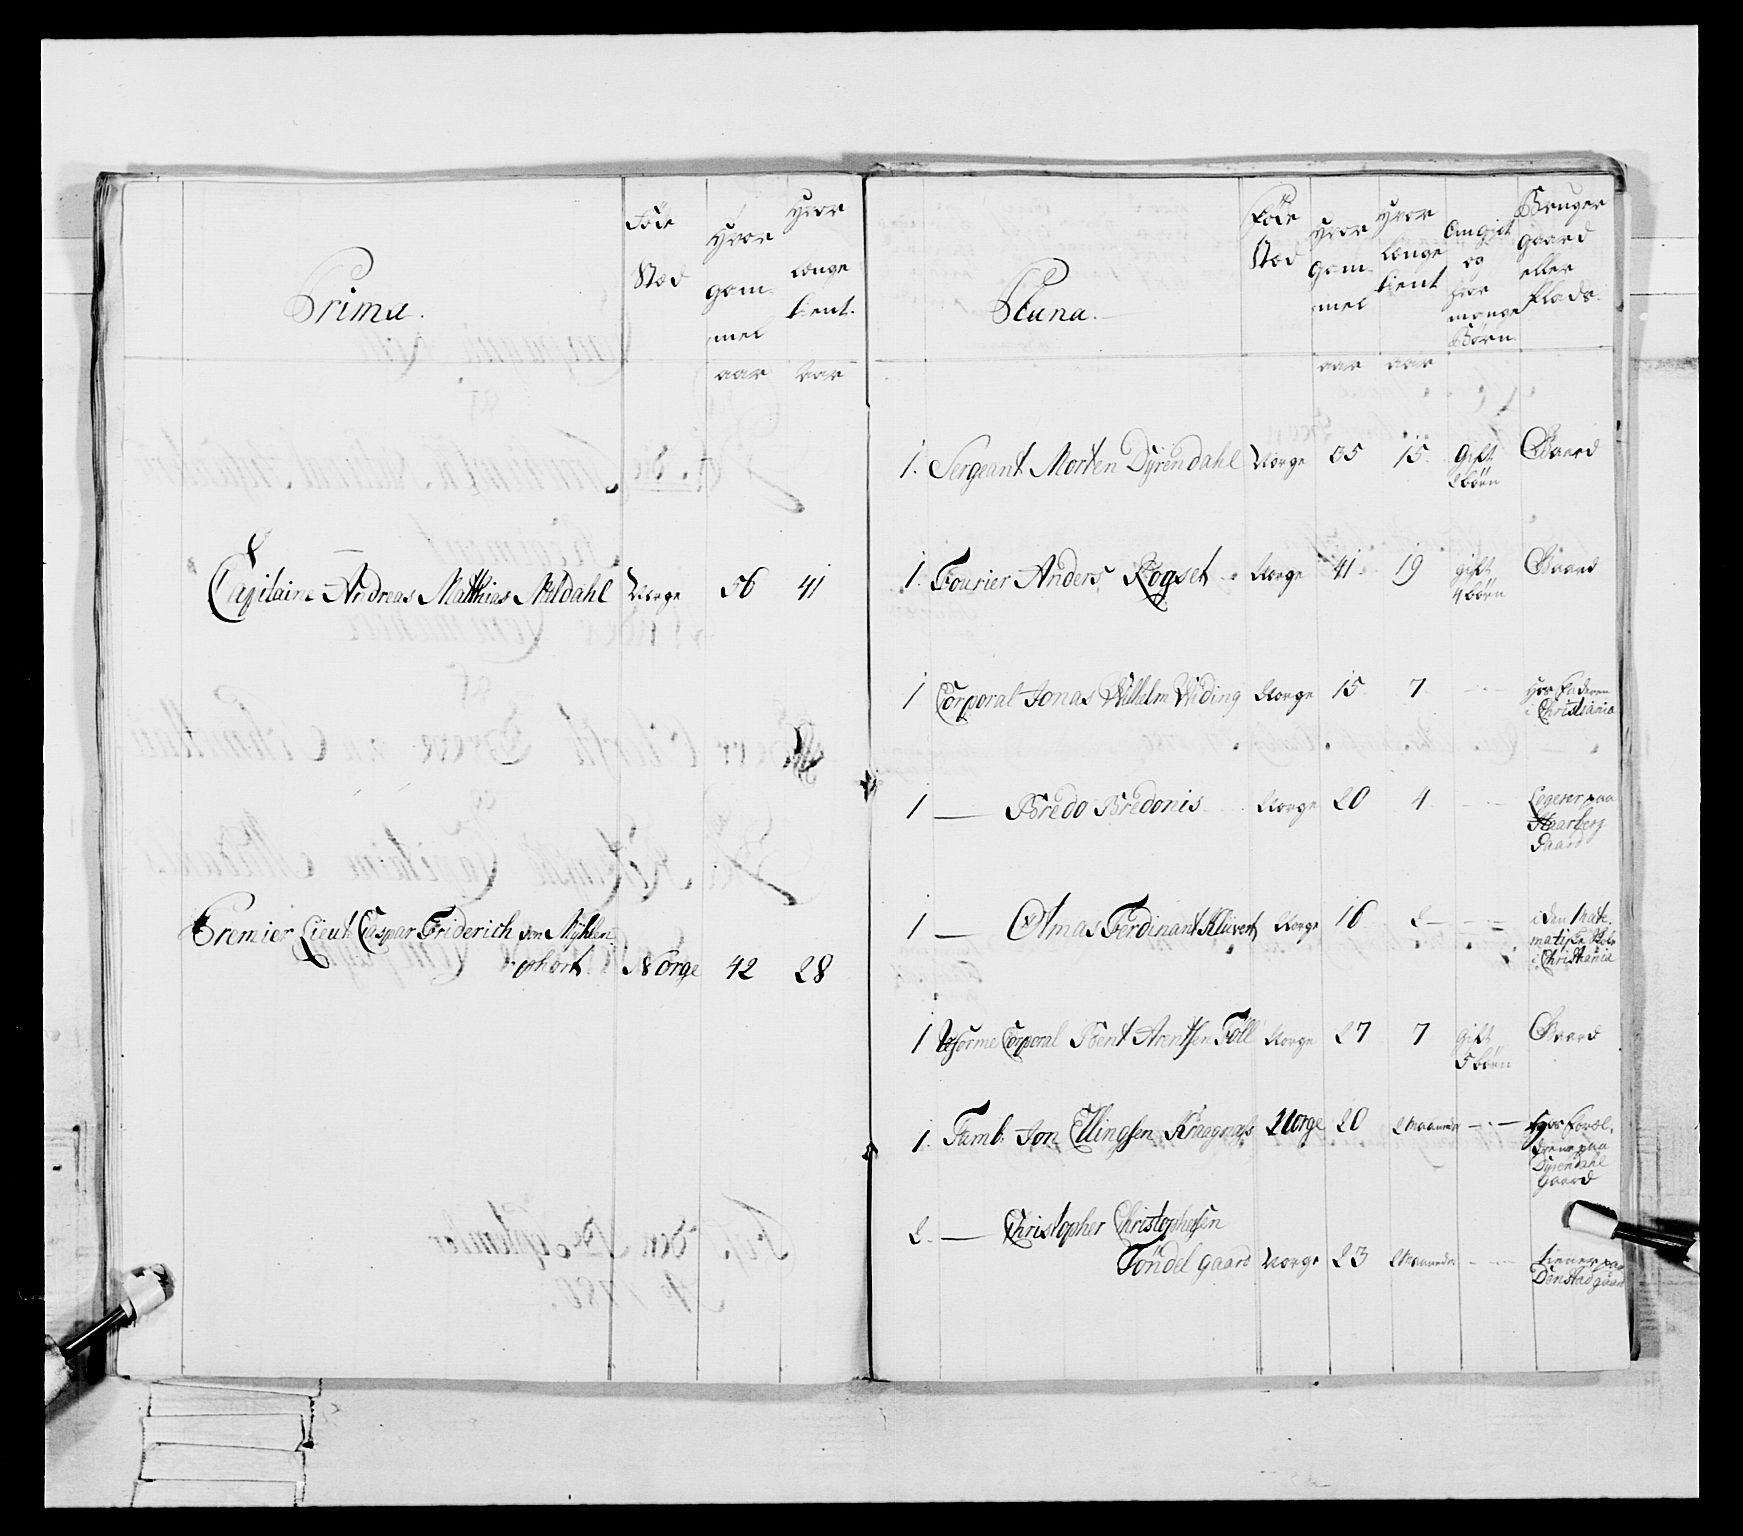 Prima.
Föde
Stæd
Hvor
gam-
mel
aar
Hvor
længe
tient.
aar
Capitaine Andreas Matthias Meldahl Norge 56 41
Premier Lieut. Caspar Friderich von Mühlen-
phort Norge 42 28
Plana.
Föde
Stæd
Hvor
gam-
mel
aar
Hvor
længe
tient
aar
Om gift
og
hvor
mange
Børn
Bruger
gaard
eller
Plads.
1. Sergeant Morten Dyrendahl Norge 35 15 Gift Gaard
2 börn
1. Fourier Anders Rogset Norge 41 19 gift Gaard
4 börn
1 Corporal Jonas Wilhelm Widing Norge 15 7 Hos Faderen
i Christiania
1 — Bredo Bredonis Norge 20 4 Logerer paa
Gaard
1 — Ferdinant Klüvert Norge 16 2 i den Mate-
matiske Skole
i Christiania
1 Corporal Bent Arentsen Föll Norge 27 7 Gift Gaard
5 börn
1. Tamb. Jon Ellingsen Kraagnæs Norge 20 2 Maaneder hos Foræl-
drene paa
Dyrendahl
Gaard
2. — Christopher Christophersen
Töndel gaard Norge 23 2 Maaneder tiener paa
Denstad gaard